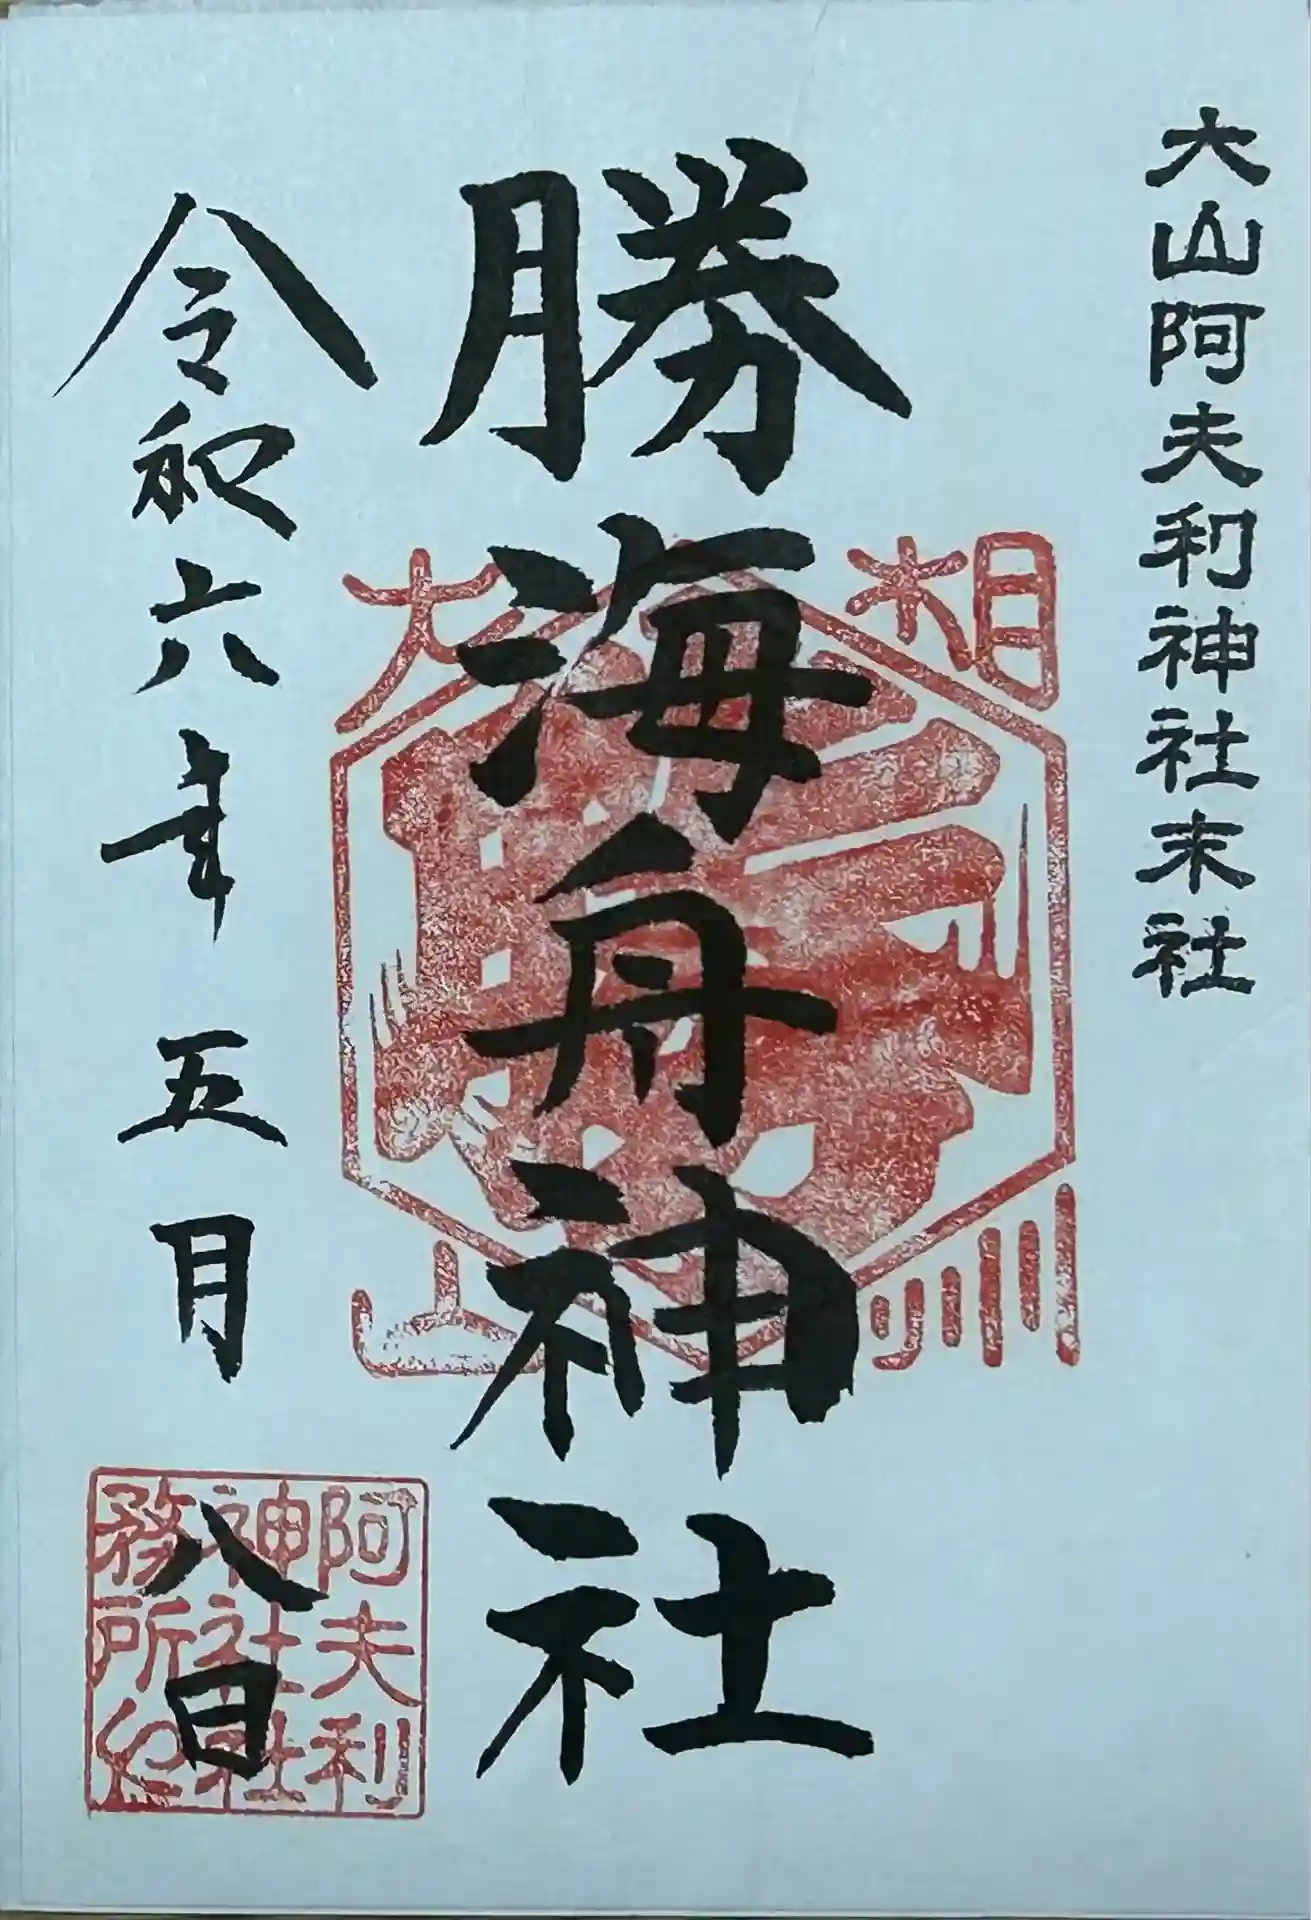 大山阿夫利神社末社
勝海舟神社
相州
大山
令和六年五月八日
阿夫利
神社社
務所印